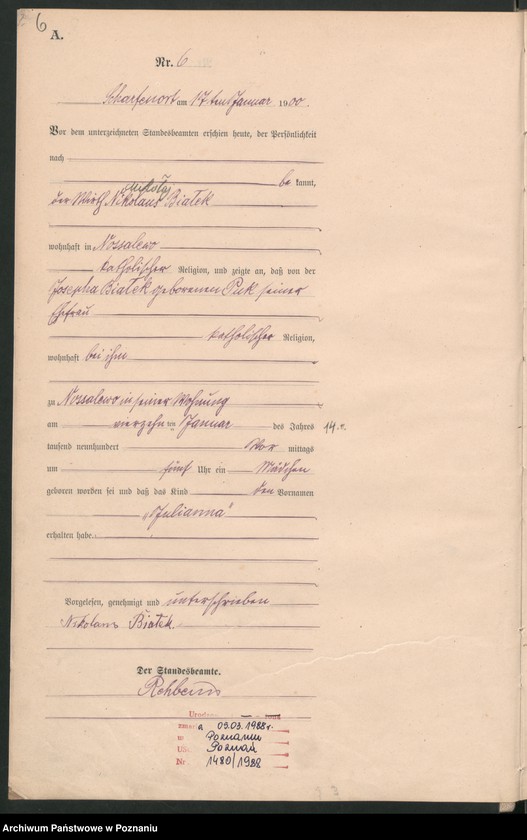 6
A.
Nr. 6
Scharfenort am 17ten Januar 1900.
Vor dem unterzeichneten Standesbeamten erschien heute, der Persönlichkeit
nach
be kannt,
Mikołaj
der Wirth Nikolaus Białek
wohnhaft in Nossalewo
katholischer Religion, und zeigte an, daß von der
Josepha Białek geborenen Puk seiner
Ehefrau
katholischer Religion,
wohnhaft bei ihm
zu Nossalewo in seiner Wohnung
am vierzehn ten Januar des Jahres 14.
tausend neunhundert Vor mittags
um fünf Uhr ein Mädchen
geboren worden sei und daß das Kind den Vornamen
„Julianna"
erhalten habe.
Vorgelesen, genehmigt und unterschrieben
Nikolaus Białek.
Der Standesbeamte.
Rehbein
zmarła 09.03.1988r.
w Poznaniu
Poznań
Nr 1480/1988
Archiwum Państwowe w Poznaniu